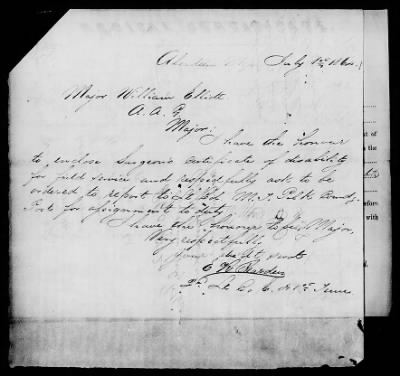 Aberdeen July 1st 1864
Major William Elliott
A. A. G.
Major:
I have the honor
to enclose Surgeon's Certificate of disability
for field service and respectfully ask to be
ordered to report to Lt Col M. T. Polk Comdg
Post for assignment to duty
I have the honor to be, Major,
Very respectfully
Your obdt servt
2nd Lt Co. C.
of
the
before
with